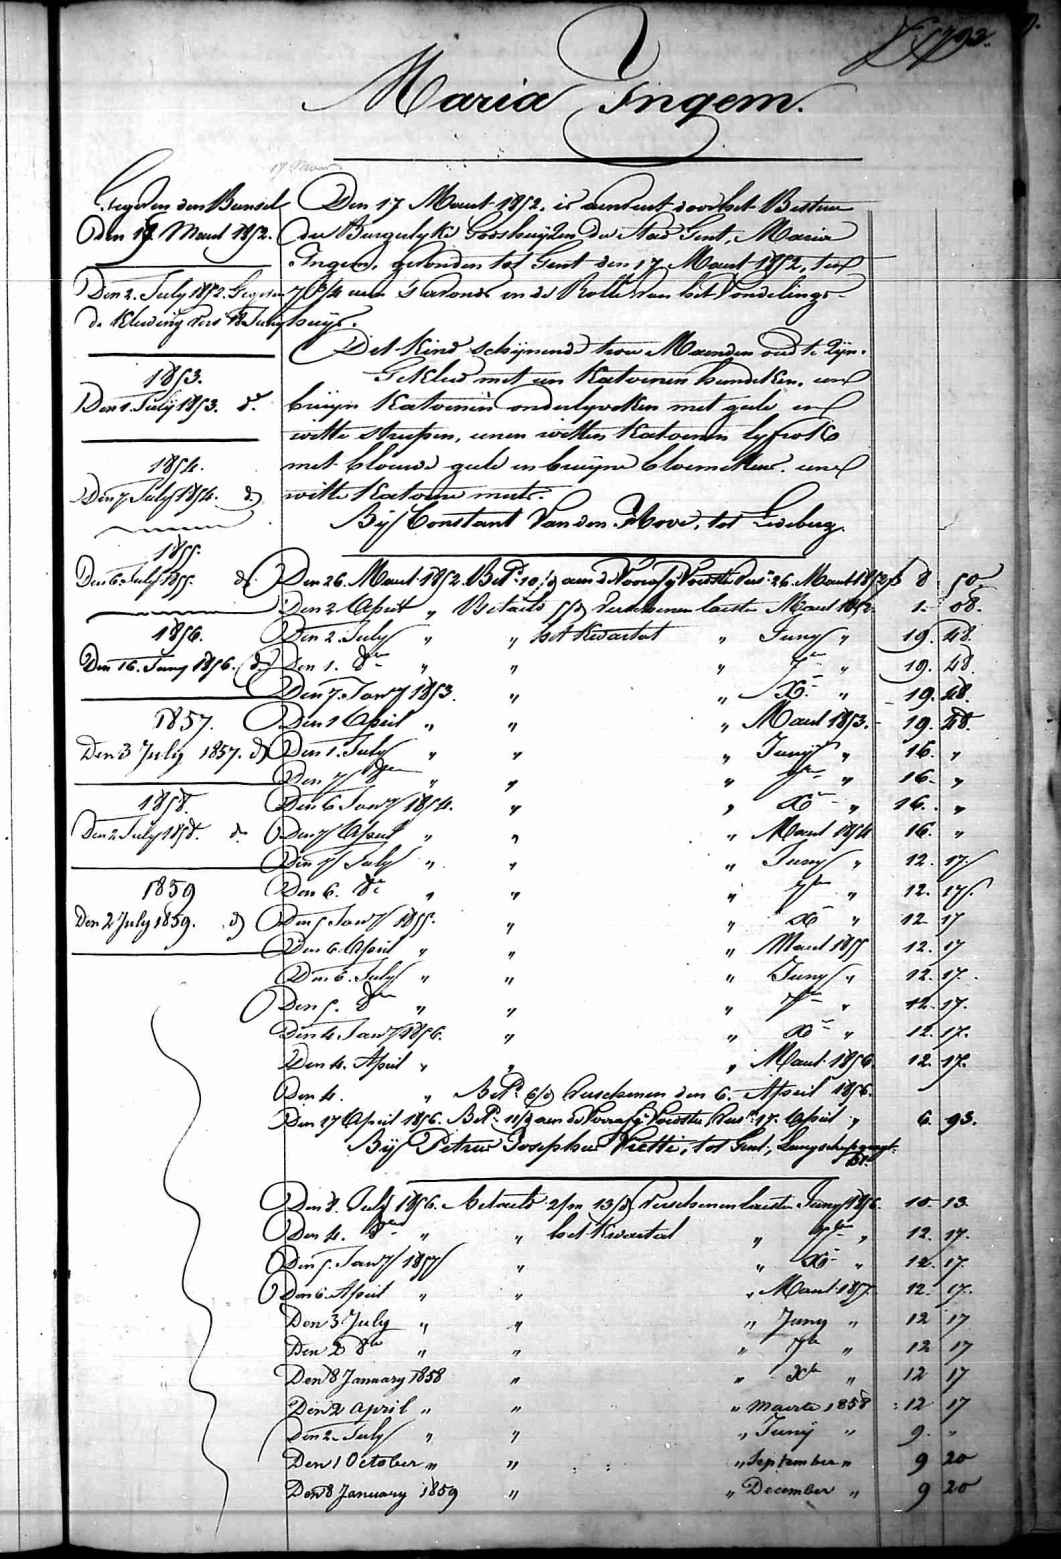 Maria Ingem.
Gegeven den Bunsel
Den 17 Maert 1852.
Den 2. July 1852. Gegeven
de Kleeding
1853.
Den 1. July 1853. do
1854.
Den 7 July 1854. do
1855.
Den 6. July 1855. do
1856.
Den 16. Juny 1856. do
1857.
Den 3 July 1857. do
1858.
Den 2 July 1858. do
1859
Den 2 July 1859. do
Den 17 Maert 1852. is aenveert door het Bestuer
der Burgerlyke Godshuyzen der Stad Gent, Maria
Ingem, gevonden tot Gent den 17 Maert 1852, ten
7 3/4 uren 's avonds in de Rolle van het Vondelings-
huys.
Det Kind schynende twee Maenden oud te zyn.
Gekleed met een Katoenen hemdeken, een
bruyn Katoenen onderlyveken met geele en
witte streepen, eenen witten Katoenen lyfrok
met blouwe geele en bruyne bloemekens, eene
witte Katoene muts.
By Constant Van den Hove, tot Ledeberg.
Den 26. Maert 1852. Betd. 10/d aen de Voorsz. Voedster Vers. 26. Maert 1852 8 50
Den 2 April " Betaeld verschenen laesten Maert 1852 1. 08.
Den 2. July " " het Kwartael " Juny " 19. 48.
Den 1. 8re " " " 7re " 19. 48.
Den 7. Jany 1853. " " Xre " 19. 48.
Den 1 April " " " Maert 1853. 19. 48.
Den 1. July " " " Juny " 16. "
Den 7 8re " " " 7re " 16. "
Den 6 Jany 1854. " " Xre " 16. "
Den 7 April " " " Maert 1854 16. "
Den 7 July " " " Juny " 12. 17
Den 6. 8re " " " 7re " 12. 17.
Den 5 Jany 1855. " " Xre " 12. 17
Den 6. April " " " Maert 1855 12. 17
Den 6. July " " " Juny " 12. 17.
Den 5. 8re " " " 7re " 12. 17.
Den 4. Jany 1856. " " Xre " 12. 17.
Den 4. April " " " Maert 1856. 12. 17.
Den 4. " Betd. 6/d verschenen den 6. April 1856.
Den 17 April 1856. Betd. 11/d aen de Voorsz. Voedster Vers. 17. April " 6. 93.
By Petrus Josephus Viette, tot Gent,
Den 8. July 1856. betaeld 2/m 13/d verschenen laesten Juny 1856. 10. 13.
Den 4. 8re " " het Kwartael " 7re " 12. 17.
Den 5. Jany 1857 " " Xre " 12. 17.
Den 6. April " " " Maert 1857 12. 17.
Den 3 July " " " Juny " 12 17
Den 2 8re " " " 7re " 12 17
Den 8 January 1858 " " Xre " 12 17
Den 2 april " " " maerte 1858 12 17
Den 2. July " " " Juny " 9. "
Den 1 October " " " September " 9 20
Den 8 January 1859 " " December " 9 20